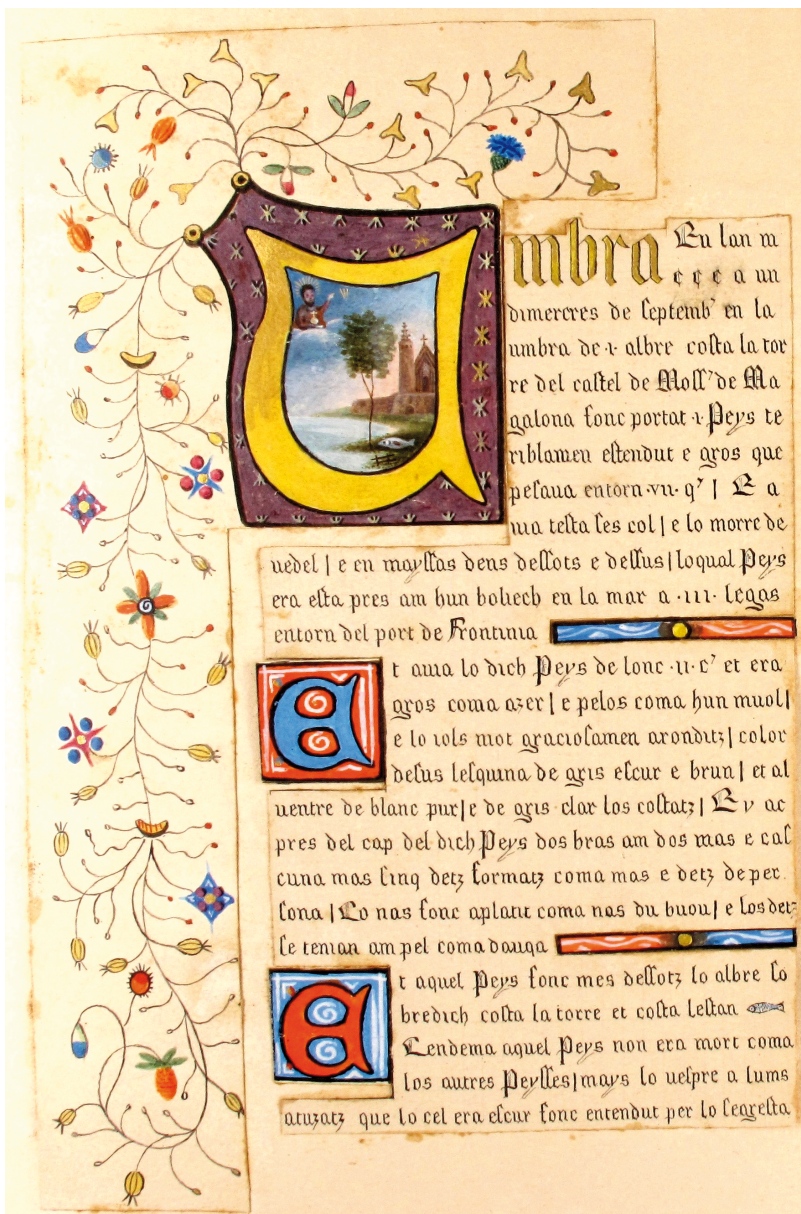 Umbra En lan m
c c c a un
dimercres de septemb' en la
umbra de ·i· albre costa la tor
re del castel de Moss' de Ma
galona fonc portat ·i· Peys te
riblamen estendut e gros que
pesaua entorn ·vii· q' | E a
uia testa ses col | e lo morre de
uedel | e en mayssas dens dessots e dessus | loqual Peys
era esta pres am hun boliech en la mar a ·iii· legas
entorn del port de Frontinia
Et auia lo dich Peys de lonc ·ii· c' et era
gros coma azer | e pelos coma hun muol |
e lo iols mot graciosamen aronditz | color
desus lesquina de gris escur e brun | et al
uentre de blanc pur | e de gris clar los costatz | Ey ac
pres del cap del dich Peys dos bras am dos mas e cas
cuna mas sinq detz formatz coma mas e detz de per
sona | Lo nas fonc aplatit coma nas du buou | e los detz
se tenian am pel coma dauqa
Et aquel Peys fonc mes dessotz lo albre so
bredich costa la torre et costa lestan
Lendema aquel Peys non era mort coma
los autres Peysses | mays lo uespre a lums
atuzatz que lo cel era escur fonc entendut per lo segresta